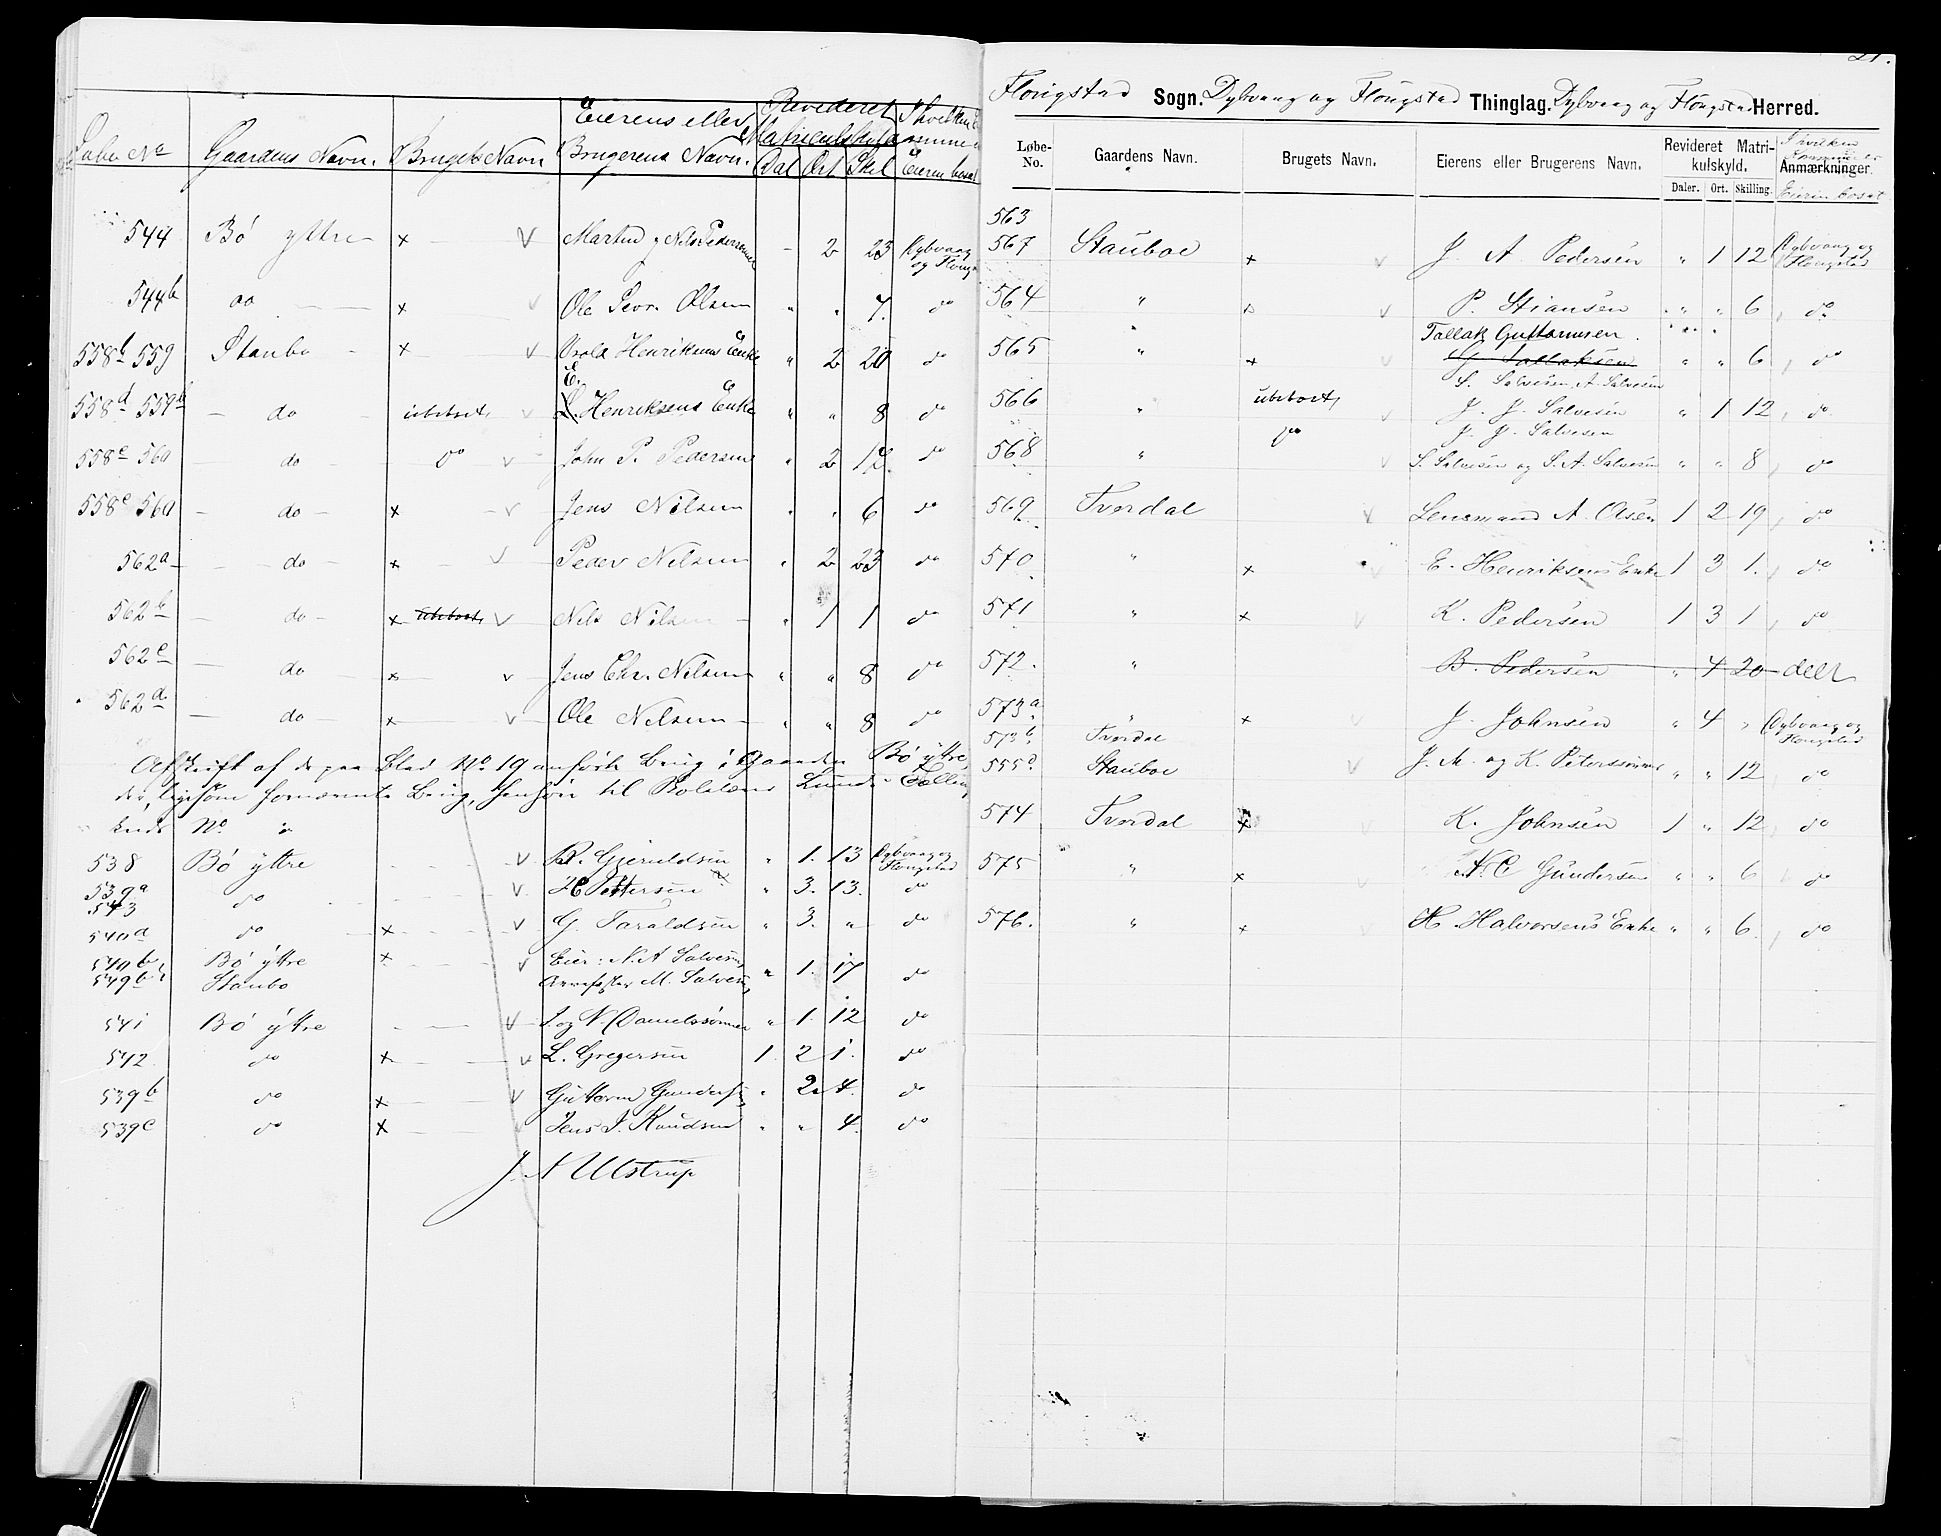 Løbe No Gaardens Navn. Brugets Navn Eierens eller Brugerens Navn. Revideret Matriculskyld Dal Ort Skil I hvilken Eieren bosat
544 Bö yttre x V Martud g Nils Pedersens " 2 23 Dybvaag og Flougst
544b do x V Ole Sevr. Olsen " " 7. do
558b 559 Staubo x V Henriksens Enke " 2 20 do
558d 559b do ubeboet V E. Henriksens Enke " " 8 do
558c 560 do do V John P. Pedersen " 2 12. do
558e 560 do x V Jens Nilsen " " 6 do
562a do x V Peder Nilsen " 2 23 do
562b do x ubeboet V Nils Nilsen " 1 1 do
562c do x V Jens Chr. Nilsen " " 8 do
562d do x V Ole Nilsen " " 8 do
Afskrift af de paa Blad No 19 anførte Brug i Gaarden Bö yttre,
der, ligesom fornævnte Brug, henhører til Rodelæns Lunde Tælling
kreds No
538 Bö yttre V R. Gjeruldsen " 1. 13 Dybvaag og Flougstad
539a 543 do V H Pettersen " 3. 13. do
540a do x V G. Taraldsen " 3. " do
540b, 549b Bö yttre Staubo x V Eier: N. A Salvesen, M. Salvesen " 1. 17 do
541 Bö yttre V S. og N. Danielssönner " 1. 12 do
542 do x V L. Gregersen 1. 2 1. do
539b do x V Guttorm Gundersen " 2 4. do
539c do x V Jens J. Knudsen " " 4. do
J. N Ulstrup
21.
Flougstad Sogn. Dybvaag og Flougstad Thinglag. Dybvaag og Flougstad Herred.
Løbe-No. Gaardens Navn. Brugets Navn. Eierens eller Brugerens Navn. Revideret Matrikulskyld. Daler. Ort. Skilling. Anmærkninger. I hvilken Eieren bosat
563
567 Stauboe x V J. A. Pedersen " 1 12 Dybvaag og Flougstad
564 " x V P. Stiansen " " 6 do
Tallak Guttormsen.
565 " x V G Tallaksen " " 6 do
S. Salvesen, A. Salvesen
566 " ubeboet, V J. J. Salvesen " 1 12 do
J. J. Salvesen
568 " do V S. Salvesen og S. A. Salvesen " " 8 do
569 Tverdal V Lensmand A. Olsen 1 2 19 do
570 " x V E. Henriksens Enke 1 3 1. do
571 " x V K. Pedersen 1 3 1 do
572. " B. Pedersen " 4 20 deelt
573a " x V J. Johnsen " 4 " Dybvaag og Flougstad
573b Tverdal
555d Stauboe V J. M. og K. Peterssönner " " 12 do
574 Tverdal x V K. Johnsen 1 " 12 do
575 " x V N. C Gundersen " " 6 do
576. " x V H Halvorsens Enke " " 6 do